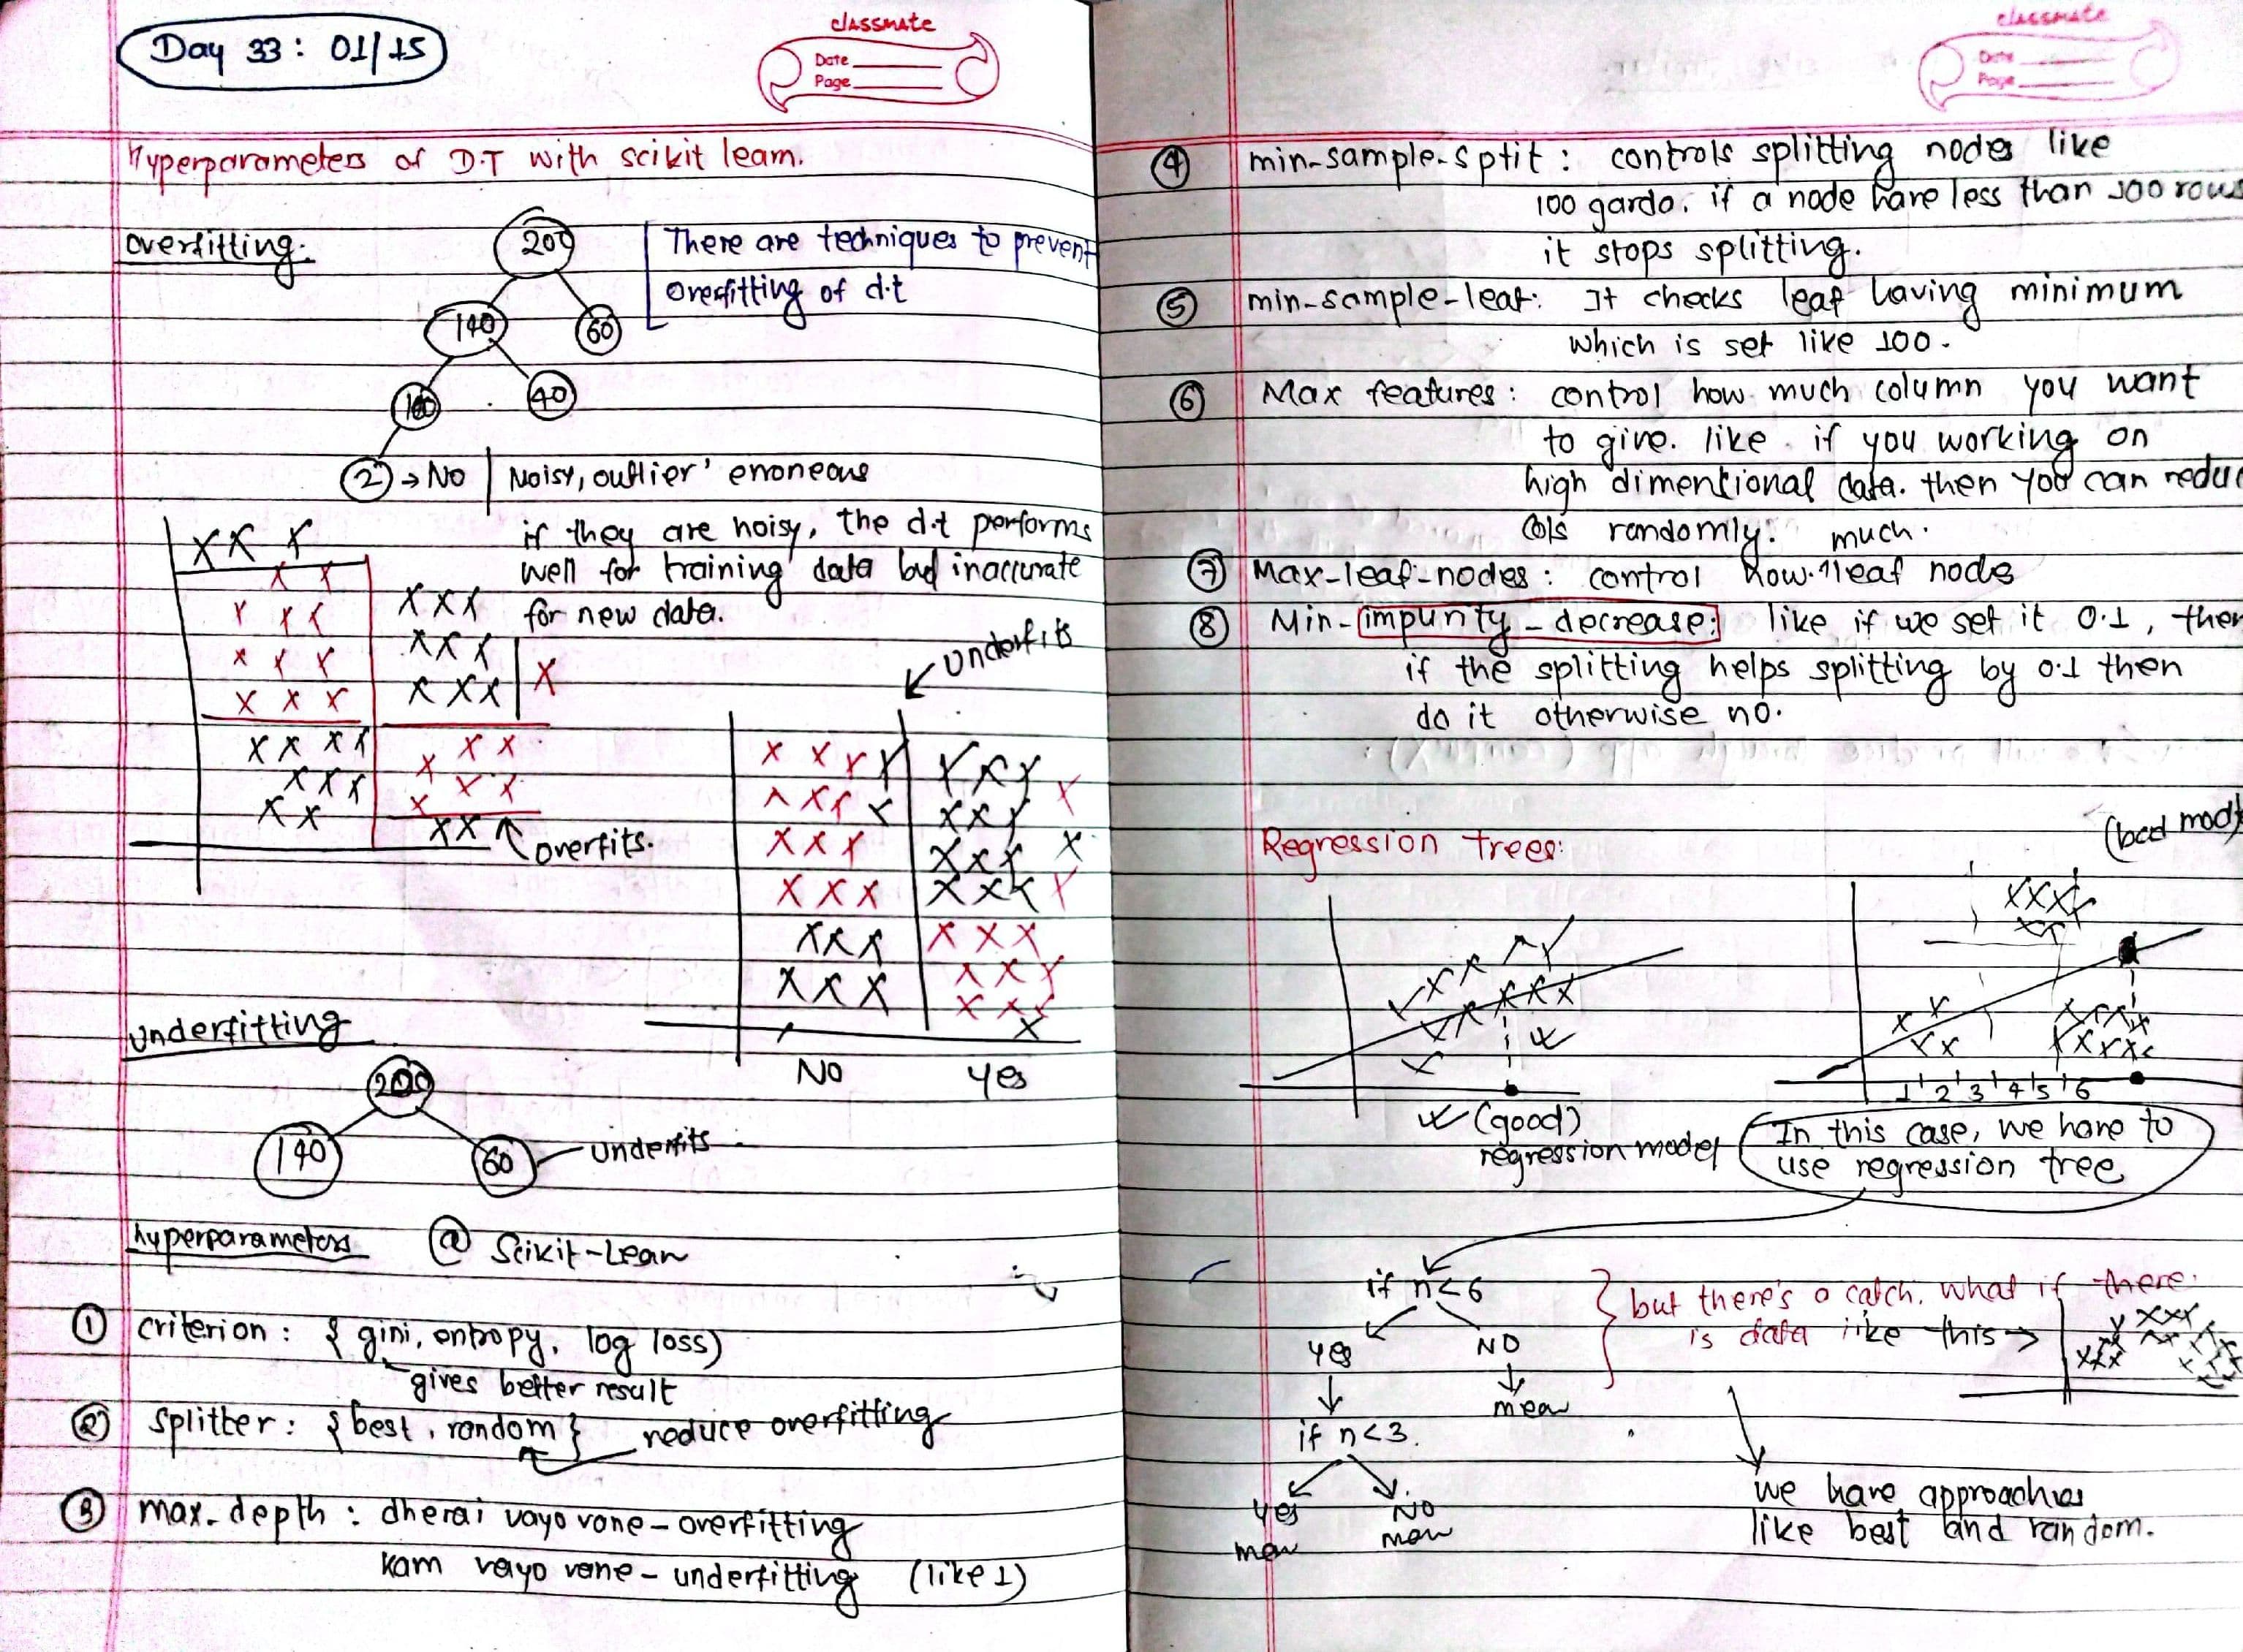 Day 33: 01/15
classmate
Date
Page
Hyperparameters of D.T with scikit learn.
overfitting.
200
140
60
100
40
2 → No
There are techniques to prevent
overfitting of d.t
Noisy, outlier, erroneous
if they are noisy, the d.t performs
well for training data but inaccurate
for new data.
XX X
X X
X XX
X X X
X X X
XXX
XXX
XXX
X
XX XX
XXX
XX
X X
X X X
X
XX
overfits.
Underfits
X X X X
X X X X
X X X
X X X
XXX
XXX
XXX
XXX
XXX
XXX
X
X
X
X X X
X X X
X X X
X
No
Yes
Underfitting
200
140
60
Underfits
hyperparameters @ Scikit-Lean
① criterion : { gini, entropy, log loss)
gives better result
② splitter : { best, random } reduce overfitting
③ max-depth : dherai vayo vane - overfitting
kam vayo vane - underfitting (like 1)
classmate
Date
Page
④ min-sample-sptit : controls splitting nodes like
100 garda. if a node have less than 100 rows
it stops splitting.
⑤ min-sample-leaf: It checks leaf having minimum
which is set like 100.
⑥ Max features : control how much column you want
to give. like if you working on
high dimentional data. then you can reduc
cols randomly.
much.
⑦ Max-leaf-nodes : control how 1 leaf node
⑧ Min-impurity-decrease: like if we set it 0.1, then
if the splitting helps splitting by 0.1 then
do it otherwise no.
Regression trees:
(bad mod
1 2 3 4 5 6
(good)
regression model
In this case, we have to
use regression tree
if n<6
Yes
NO
mean
if n<3.
Yes
NO
mean
mean
but there's a catch. what if there
is data like this →
we have approaches
like best and random.